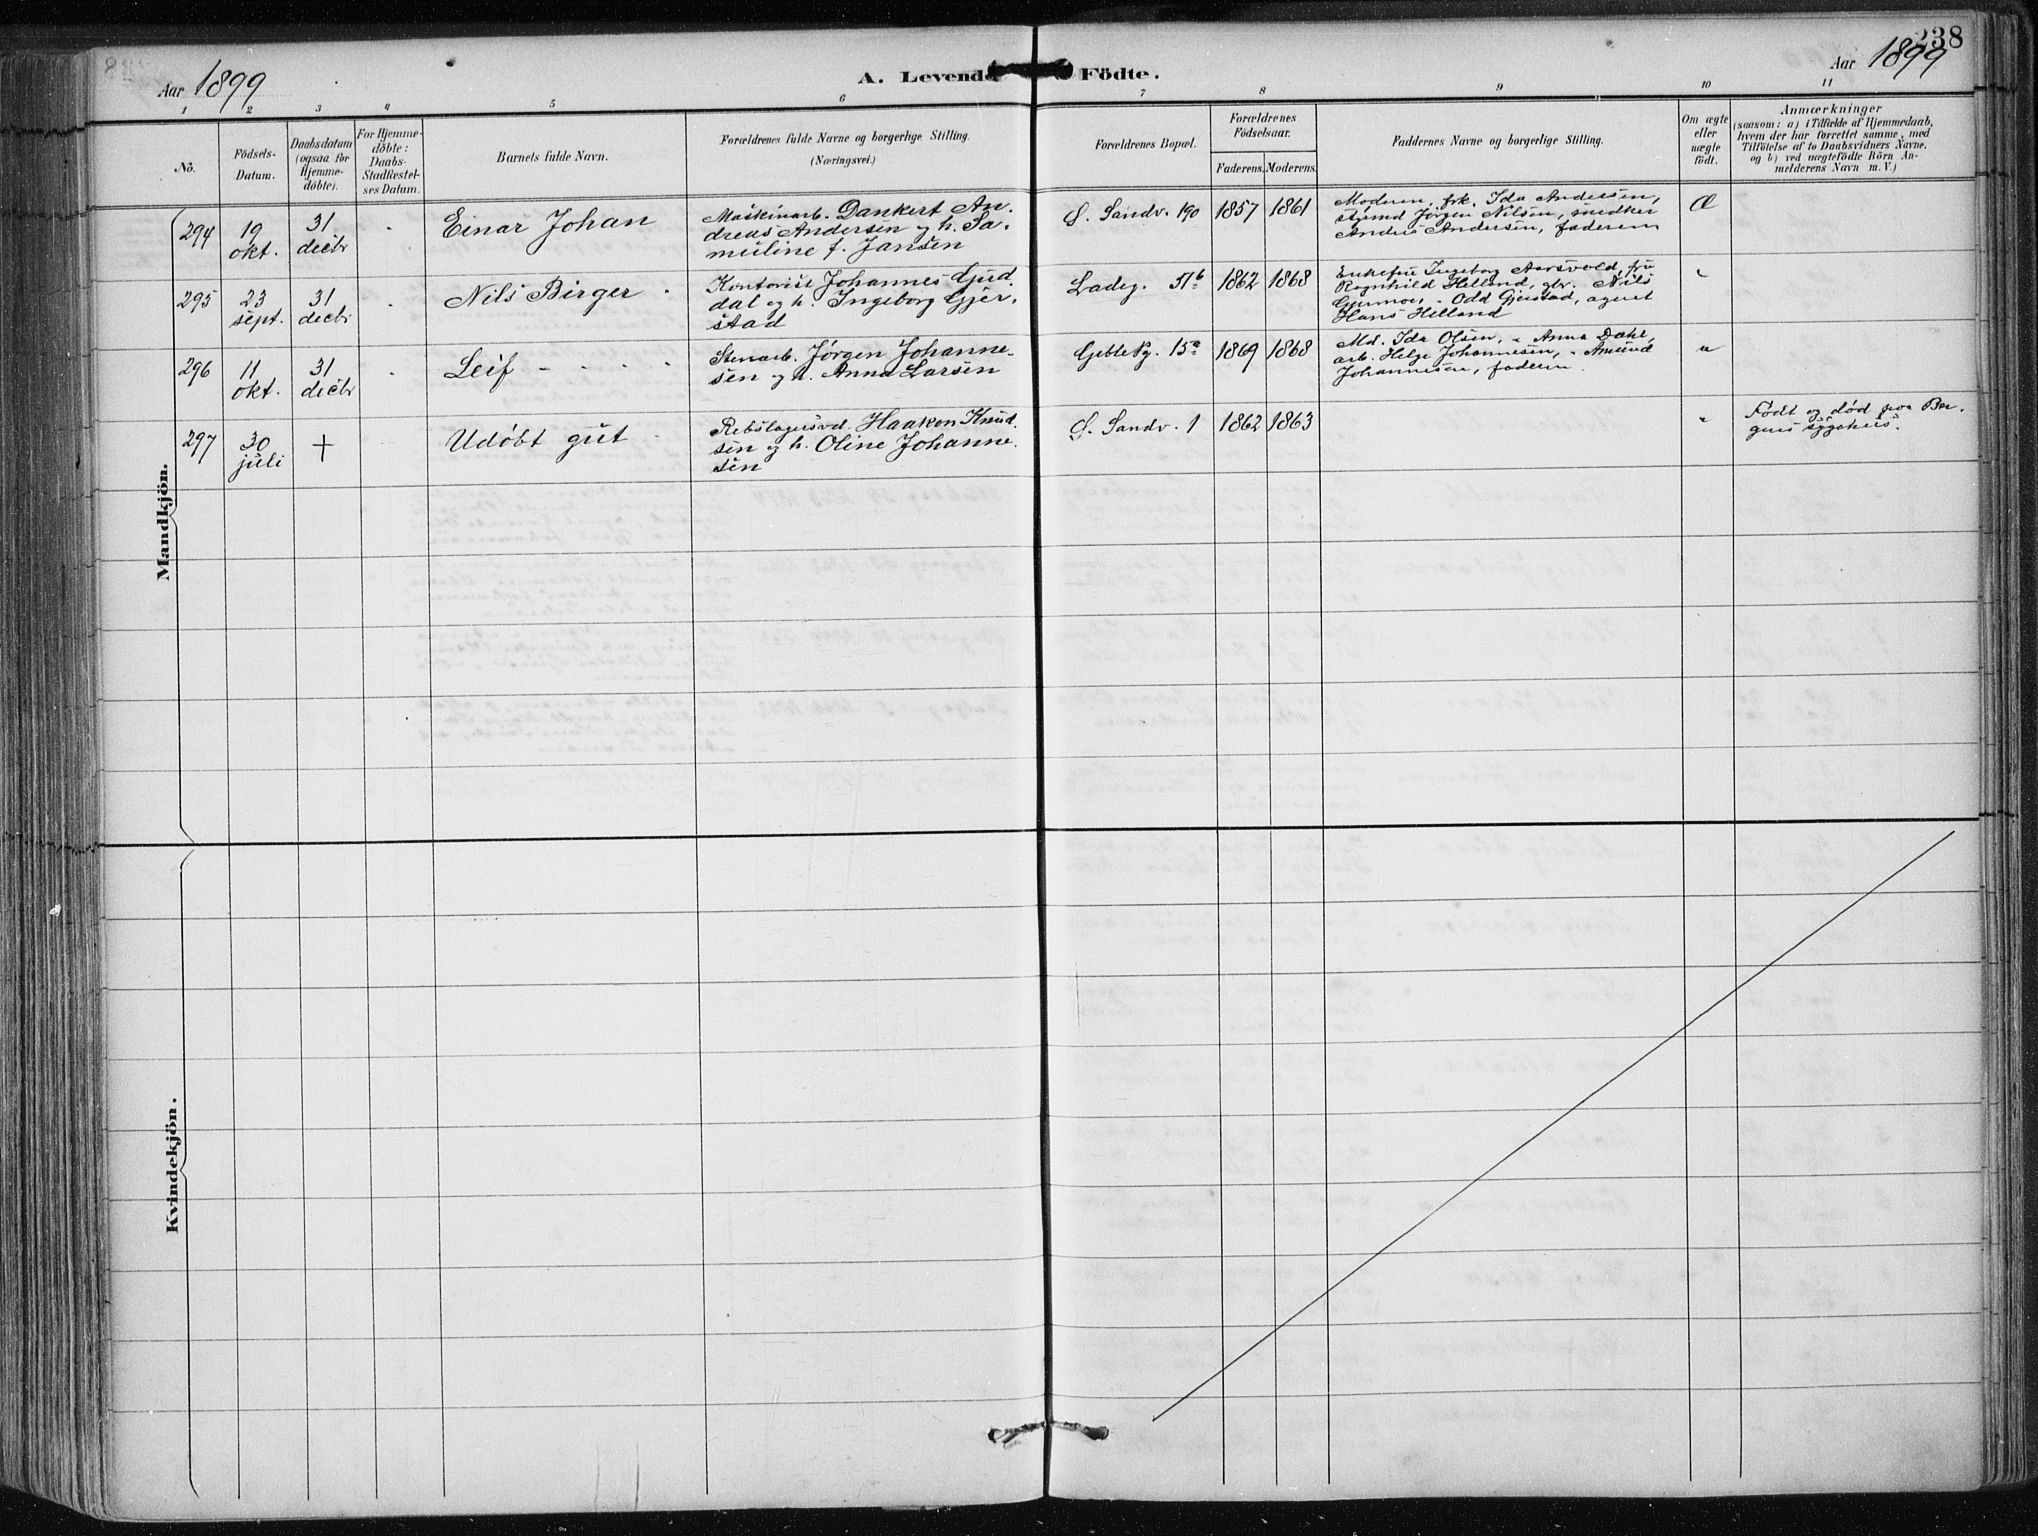 238
Aar 1899
A. Levende Födte.
Aar 1899
1 2 3 4 5 6 7 8 9 10 11
No.
Födsels-Datum.
Daabsdatum (ogsaa for Hjemme-døbte).
For Hjemme-döbte: Daabs-Stadfæstel-ses Datum.
Barnets fulde Navn.
Forældrenes fulde Navne og borgerlige Stilling.
(Næringsvei.)
Forældrenes Bopæl.
Forældrenes Födselsaar.
Faderens. Moderens.
Faddernes Navne og borgerlige Stilling.
Om ægte eller uægte födt.
Anmærkninger
(saasom: a) i Tilfælde af Hjemmedaab,
hvem der har forrettet samme, med
Tilföielse af to Daabsvidners Navne,
og b) ved uægtefödte Börn An-
melderens Navn m. V.)
Mandkjön.
294 19 okt. 31 decbr - Einar Johan
Maskinarb. Dankert An-
dreas Andersen og h. Sa-
muline f. Jansen
S. Sandv. 190 1857 1861
Moderen, frk. Ida Andersen,
Jørgen Nilsen, snedker
Anders Andersen, faderen
Æ
295 23 sept. 31 decbr - Nils Birger
Kontorist Johannes Gjud-
dal og h. Ingeborg Gjer-
stad
Ladeg. 51b 1862 1868
Enkefru Ingeborg Aarsvold, fru
Ragnhild Helland, gbr. Nils
Odd Gjerstad, agent
Hans Helland
"
296 11 okt. 31 decbr - Leif
Stenarb. Jørgen Johanne-
sen og h. Anna Larsen
Geble Pg. 15a 1869 1868
Md. Ida Olsen, " Anna Dahl,
arb. Helge Johannesen, " Amund
Johannesen, faderen.
"
297 30 juli + Udøbt gut
Rebslagersvd. Haakon Knud-
sen og h. Oline Johanne-
sen
S. Sandv. 1 1862 1863
"
Født og død paa Ber-
gens sygehus.
Kvindekjön.